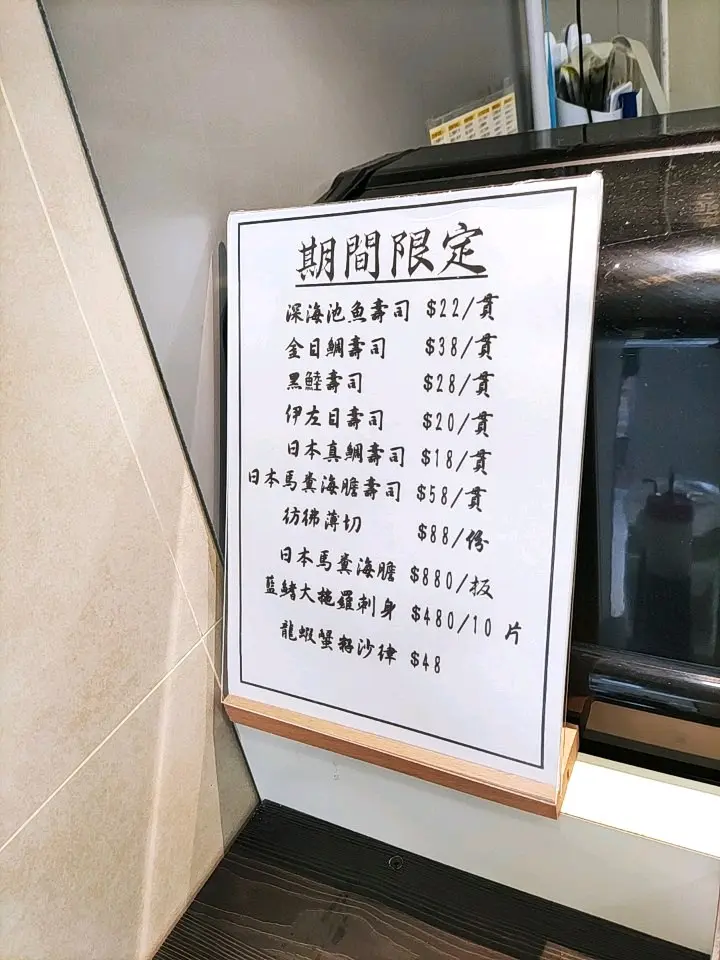 期間限定
深海池魚壽司 $22/貫
金目鯛壽司 $38/貫
黑鯥壽司 $28/貫
伊左目壽司 $20/貫
日本真鯛壽司 $18/貫
日本馬糞海膽壽司 $58/貫
彷彿薄切 $88/份
日本馬糞海膽 $880/板
藍鰭大拖羅刺身 $480/10片
龍蝦蟹籽沙律 $48